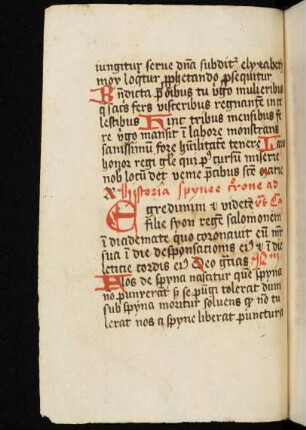 iungitur serue dña subdit' elyzabeth
moy loqtur pphetando psequitur
Bñdicta p oibus tu vgo mulieribus
q sacs fers visceribus regnantē in ce
lestibus Hinc tribus mensibus fe
re vgo mansit ī labore monstrans
sanissimū fore huīlitatē tenere Laus
honor regi gle qui p cursū miserie
nob locū det venie pcibus scē marie
Historia spynee corone ad
Egredimini et videte vs Ca
filie syon regē salomonem
ī diademate quo coronauit eū mr
sua ī die desponsacionis ei' et ī die
leticie cordis ei' Deo grãtias
Flos de spyna nascitur que spyna
no punxerat s se pūgi tolerat dum
sub spyna moritur soluens q nō tu
lerat nos a spyne liberat punctura